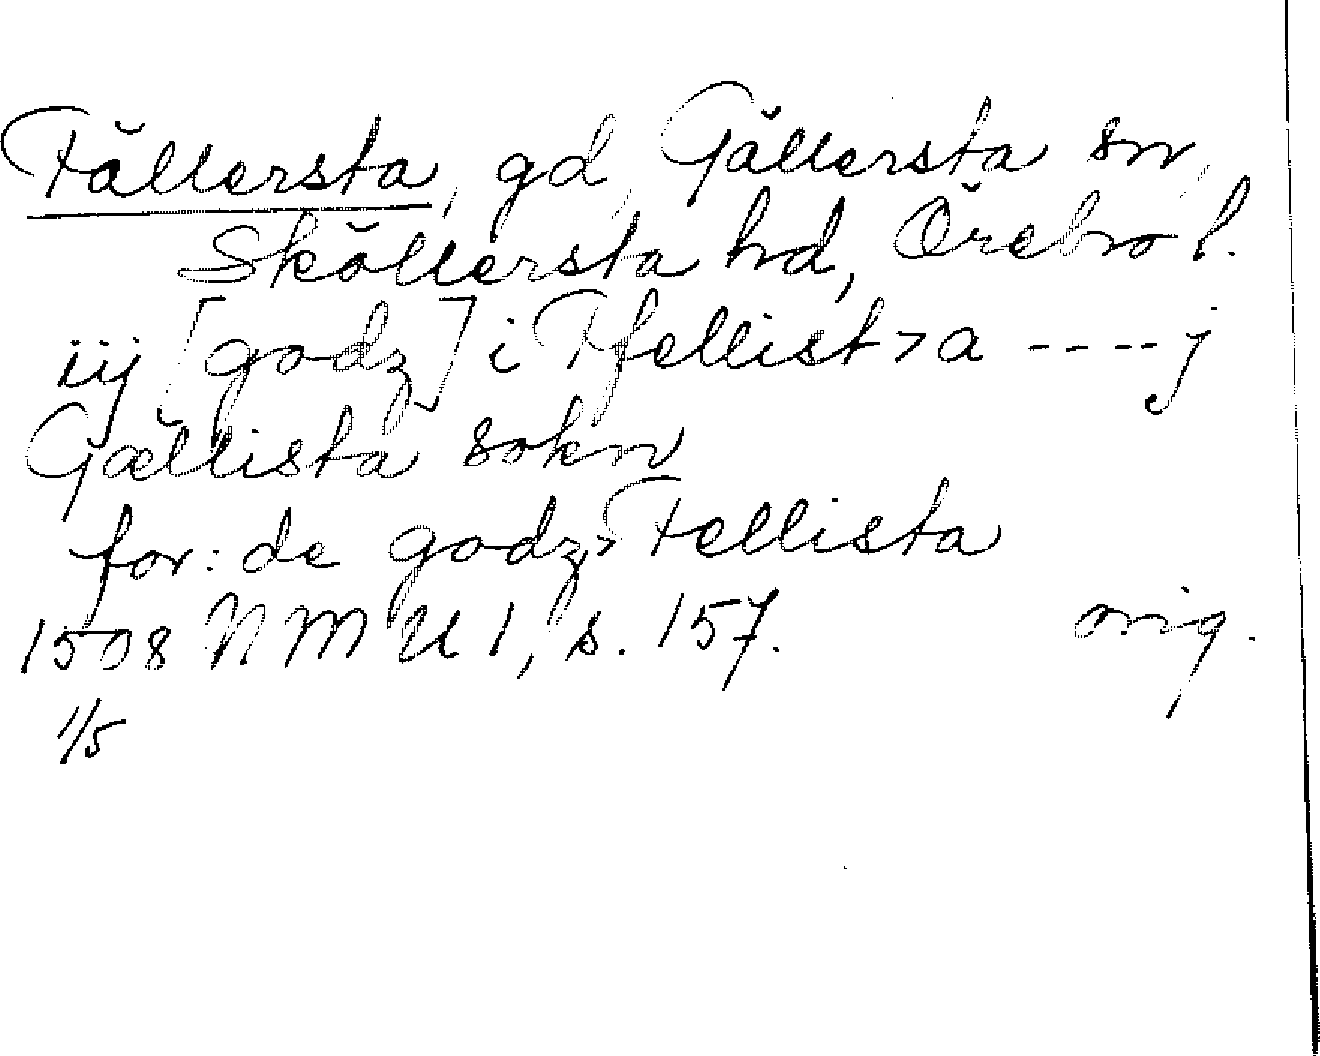 Fällersta, gd, Gällersta sn,
Sköllersta hd, Örebro l.
iij [godz] i Ffellist>a ---- j
Gællista sokn
for: de godz > Fellista
1508 NMU 1, s. 157. orig.
1/5